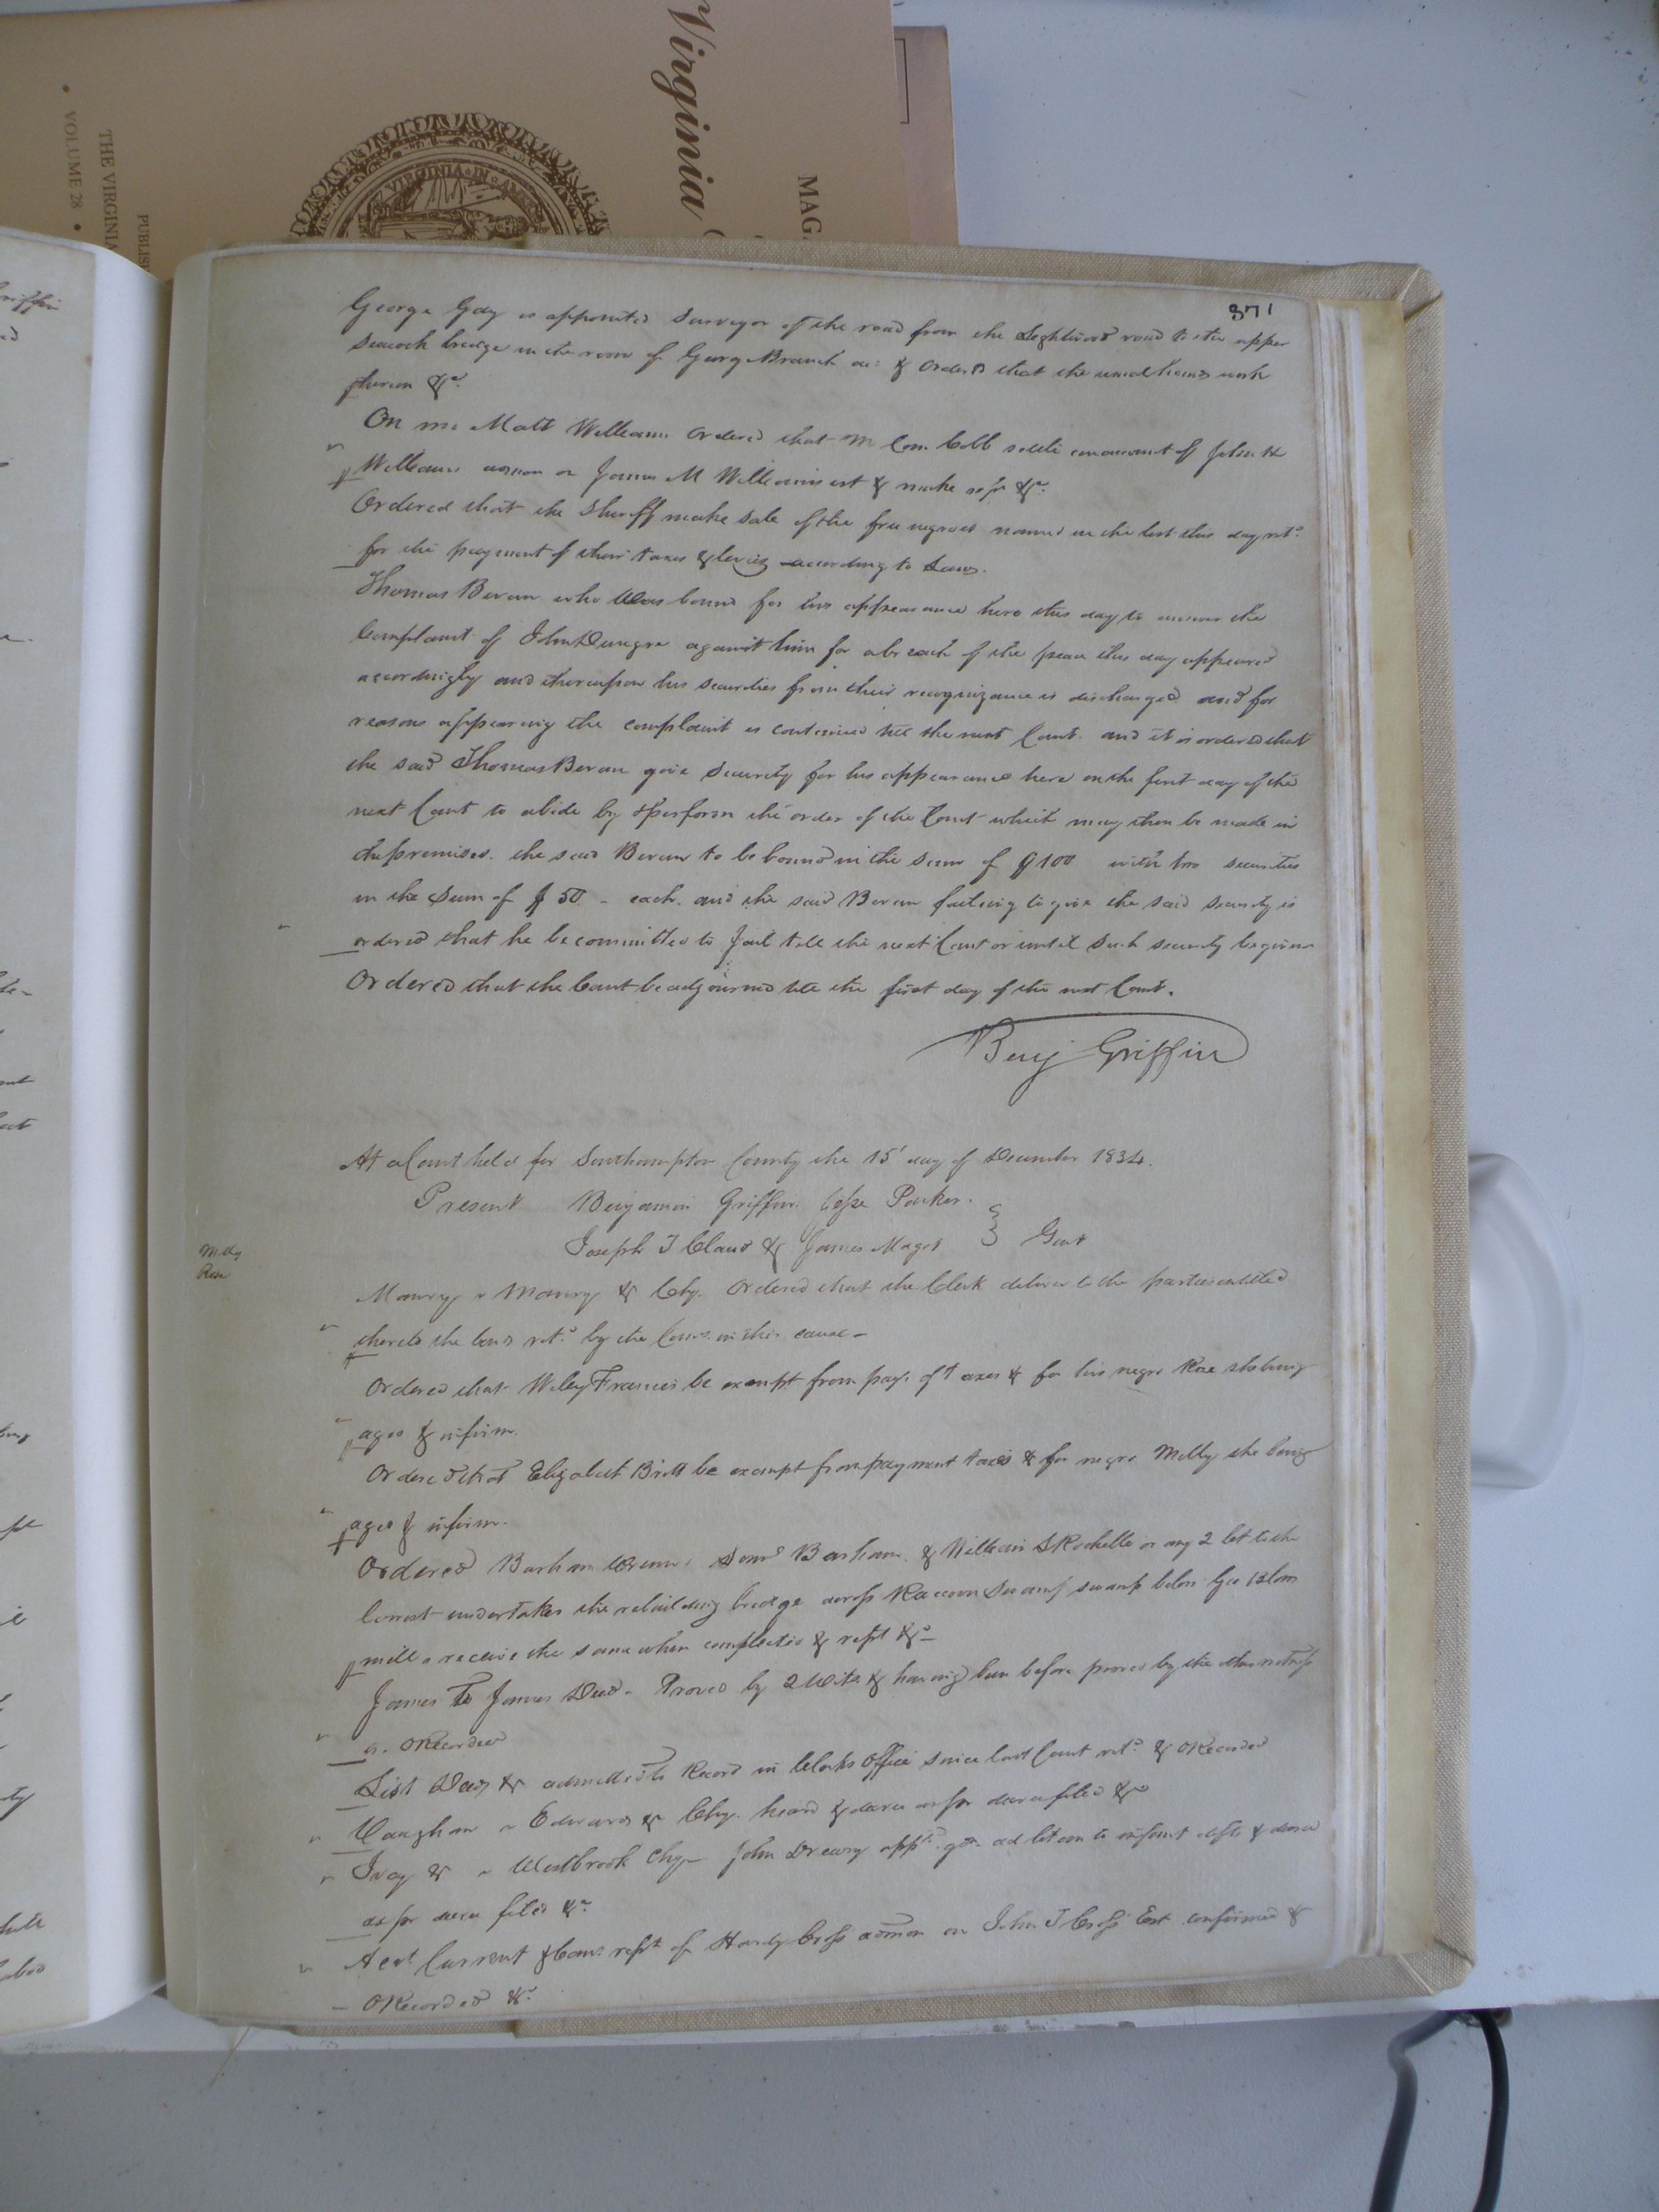 Virginia
MAG
THE VIRGINIA
VOLUME 28
PUBLIS
VIRGINIA IN
371
George Gay is appointed Surveyor of the road from the Lightwood road to the upper
Seacock bridge in the room of George Branch & Orders that the usual hands work
thereon &c.
On mo Matt Williams Ordered that Com Cobb settle an account of John H
Williams admon on James M Williams est & make rept &c.
Ordered that the Sheriff make sale of the free negroes named in the list this day retd.
for the payment of their taxes & levies according to Law.
Thomas Bevan who was bound for his appearance here this day to answer the
Complaint of John against him for a breach of the peace this day appeared
accordingly and thereupon his securities from their recognizance is discharged and for
reasons appearing the complaint is continued till the next Court. and it is ordered that
the said Thomas Bevan give security for his appearance here on the first day of the
next Court to abide by & perform the order of the Court which may then be made in
the premises. the said Bevan to be bound in the sum of $100 with two securities
in the sum of $50 - each. and the said Bevan failing to give the said security is
ordered that he be committed to Jail till the next Court or until such security be given
Ordered that the Court be adjourned till the first day of the next Court.
Benj Griffin
At a Court held for Southampton County the 15 day of December 1834.
Present Benjamin Griffin Jesse Parker.
Joseph T Claud & James Maget } Gent
Milly
Rose
Maury v Maury & Chy. Ordered that the Clerk deliver to the parties entitled
thereto the bonds retd. by the Coms. in this cause -
Ordered that Wiley Francis be exempt from pay. of taxes & for his negro Rose she being
aged & infirm.
Ordered that Elizabeth Britt be exempt from payment taxes & for negro Milly she being
aged & infirm.
Ordered Barham & William S Rochelle or any 2 let to the
lowest undertaker the rebuilding bridge across Raccoon Swamp swamp below Geo
mill & receive the same when completed & rept &c -
James To James Deed - Proved by 2 Wits & having been before proved by the other witness
is ORecorded
List Deeds &c admitted to Record in Clerks office since last Court retd. & ORecorded
Vaughan v Edwards &c Chy. heard & decree as per decree filed &c
Ivey &c v Westbrook Chy - John Drewry appd. gdn ad litem to infant defts & decree
as per decree filed &c.
Acct Current & Coms rept of Hardy Cross admon on John T Cross Est confirmed &
ORecorded &c.